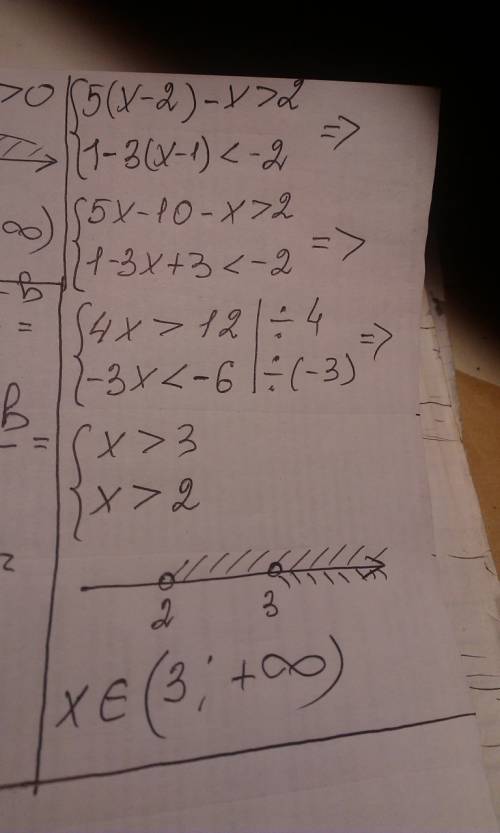 >0
∞)
B
=
B
=
{5(x-2)-x>2
{1-3(x-1)<-2 =>
{5x-10-x>2
{1-3x+3<-2 =>
{4x>12 | ÷4
{-3x<-6 | ÷(-3) =>
{x>3
{x>2
2 3
x∈(3;+∞)